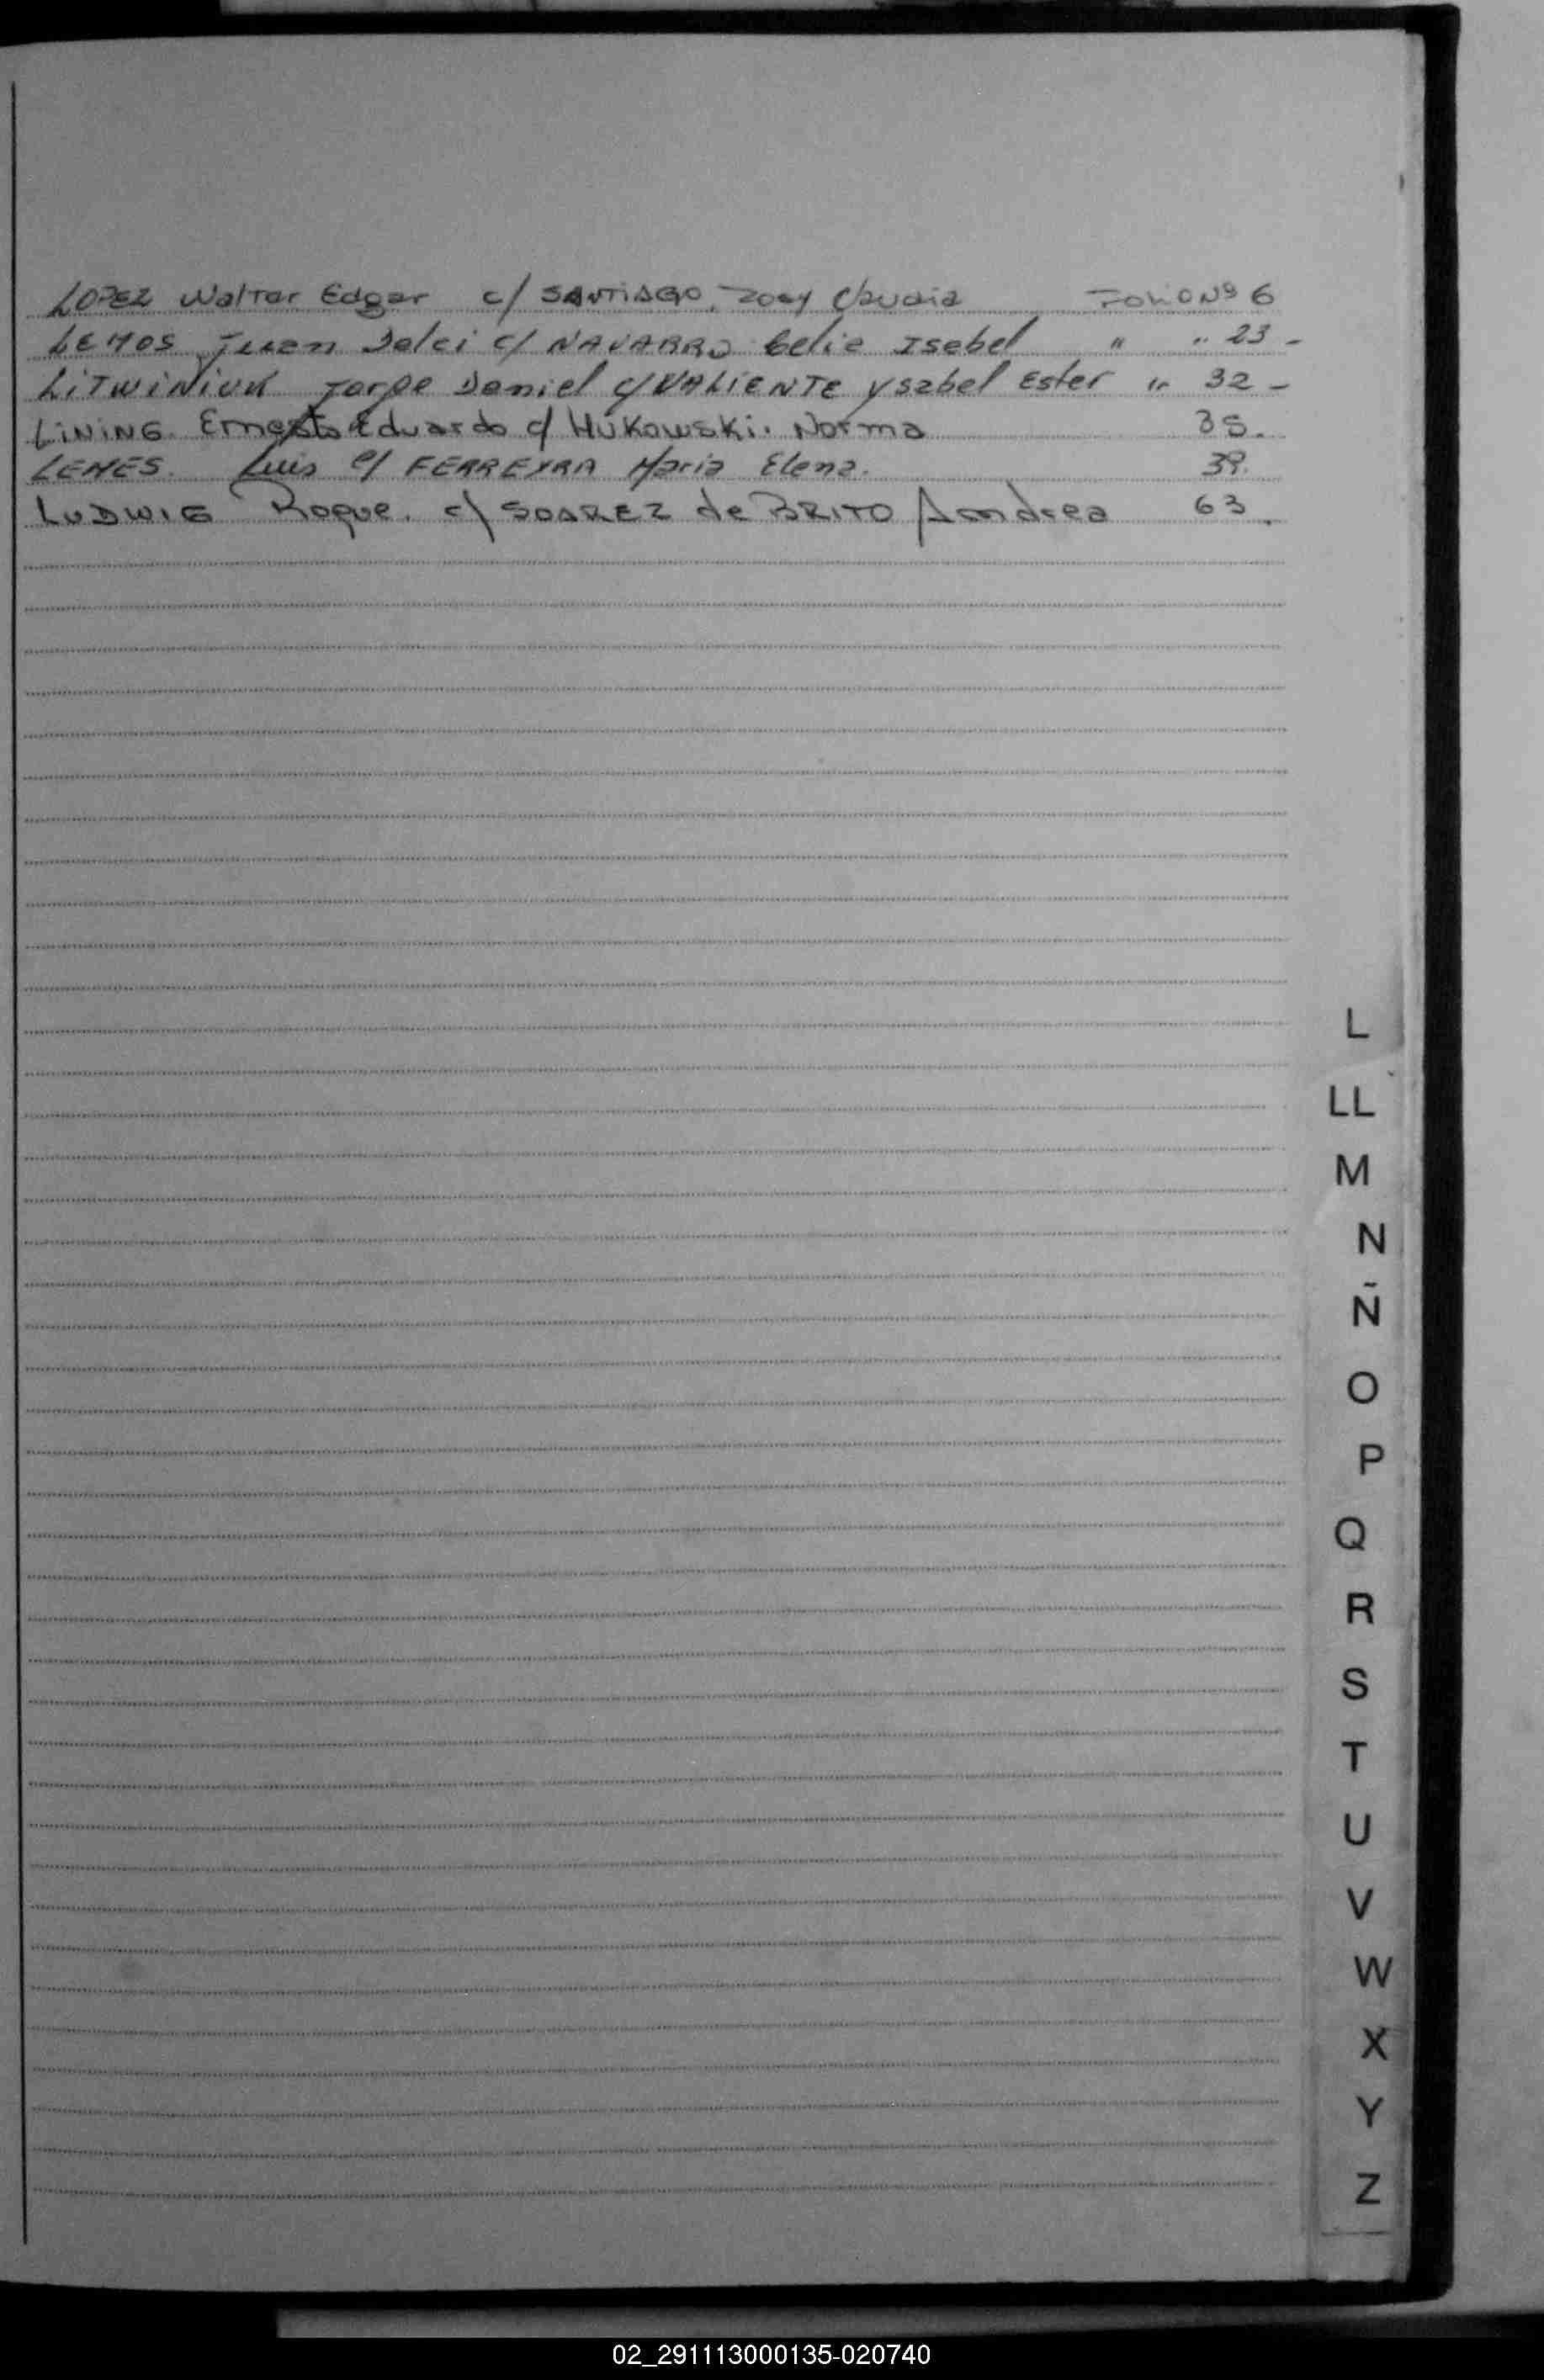 LOPEZ Walter Edgar c/ SANTIAGO, Zoey Claudia FOLIO Nº 6
LEMOS Juan Delci c/ NAVARRO Celia Isabel " " 23 -
LiTWiNiUK Jorge Daniel c/ VALIENTE Ysabel Ester " 32 -
LiNiNG. Ernesto Eduardo c/ HUKOWSKi. Norma 35.
LEMES. Luis c/ FERREYRA Maria Elena. 39.
LUDWIG Roque. c/ SOAREZ de BRITO Andrea 63.
L
LL
M
N
Ñ
O
P
Q
R
S
T
U
V
W
X
Y
Z
02_291113000135-020740